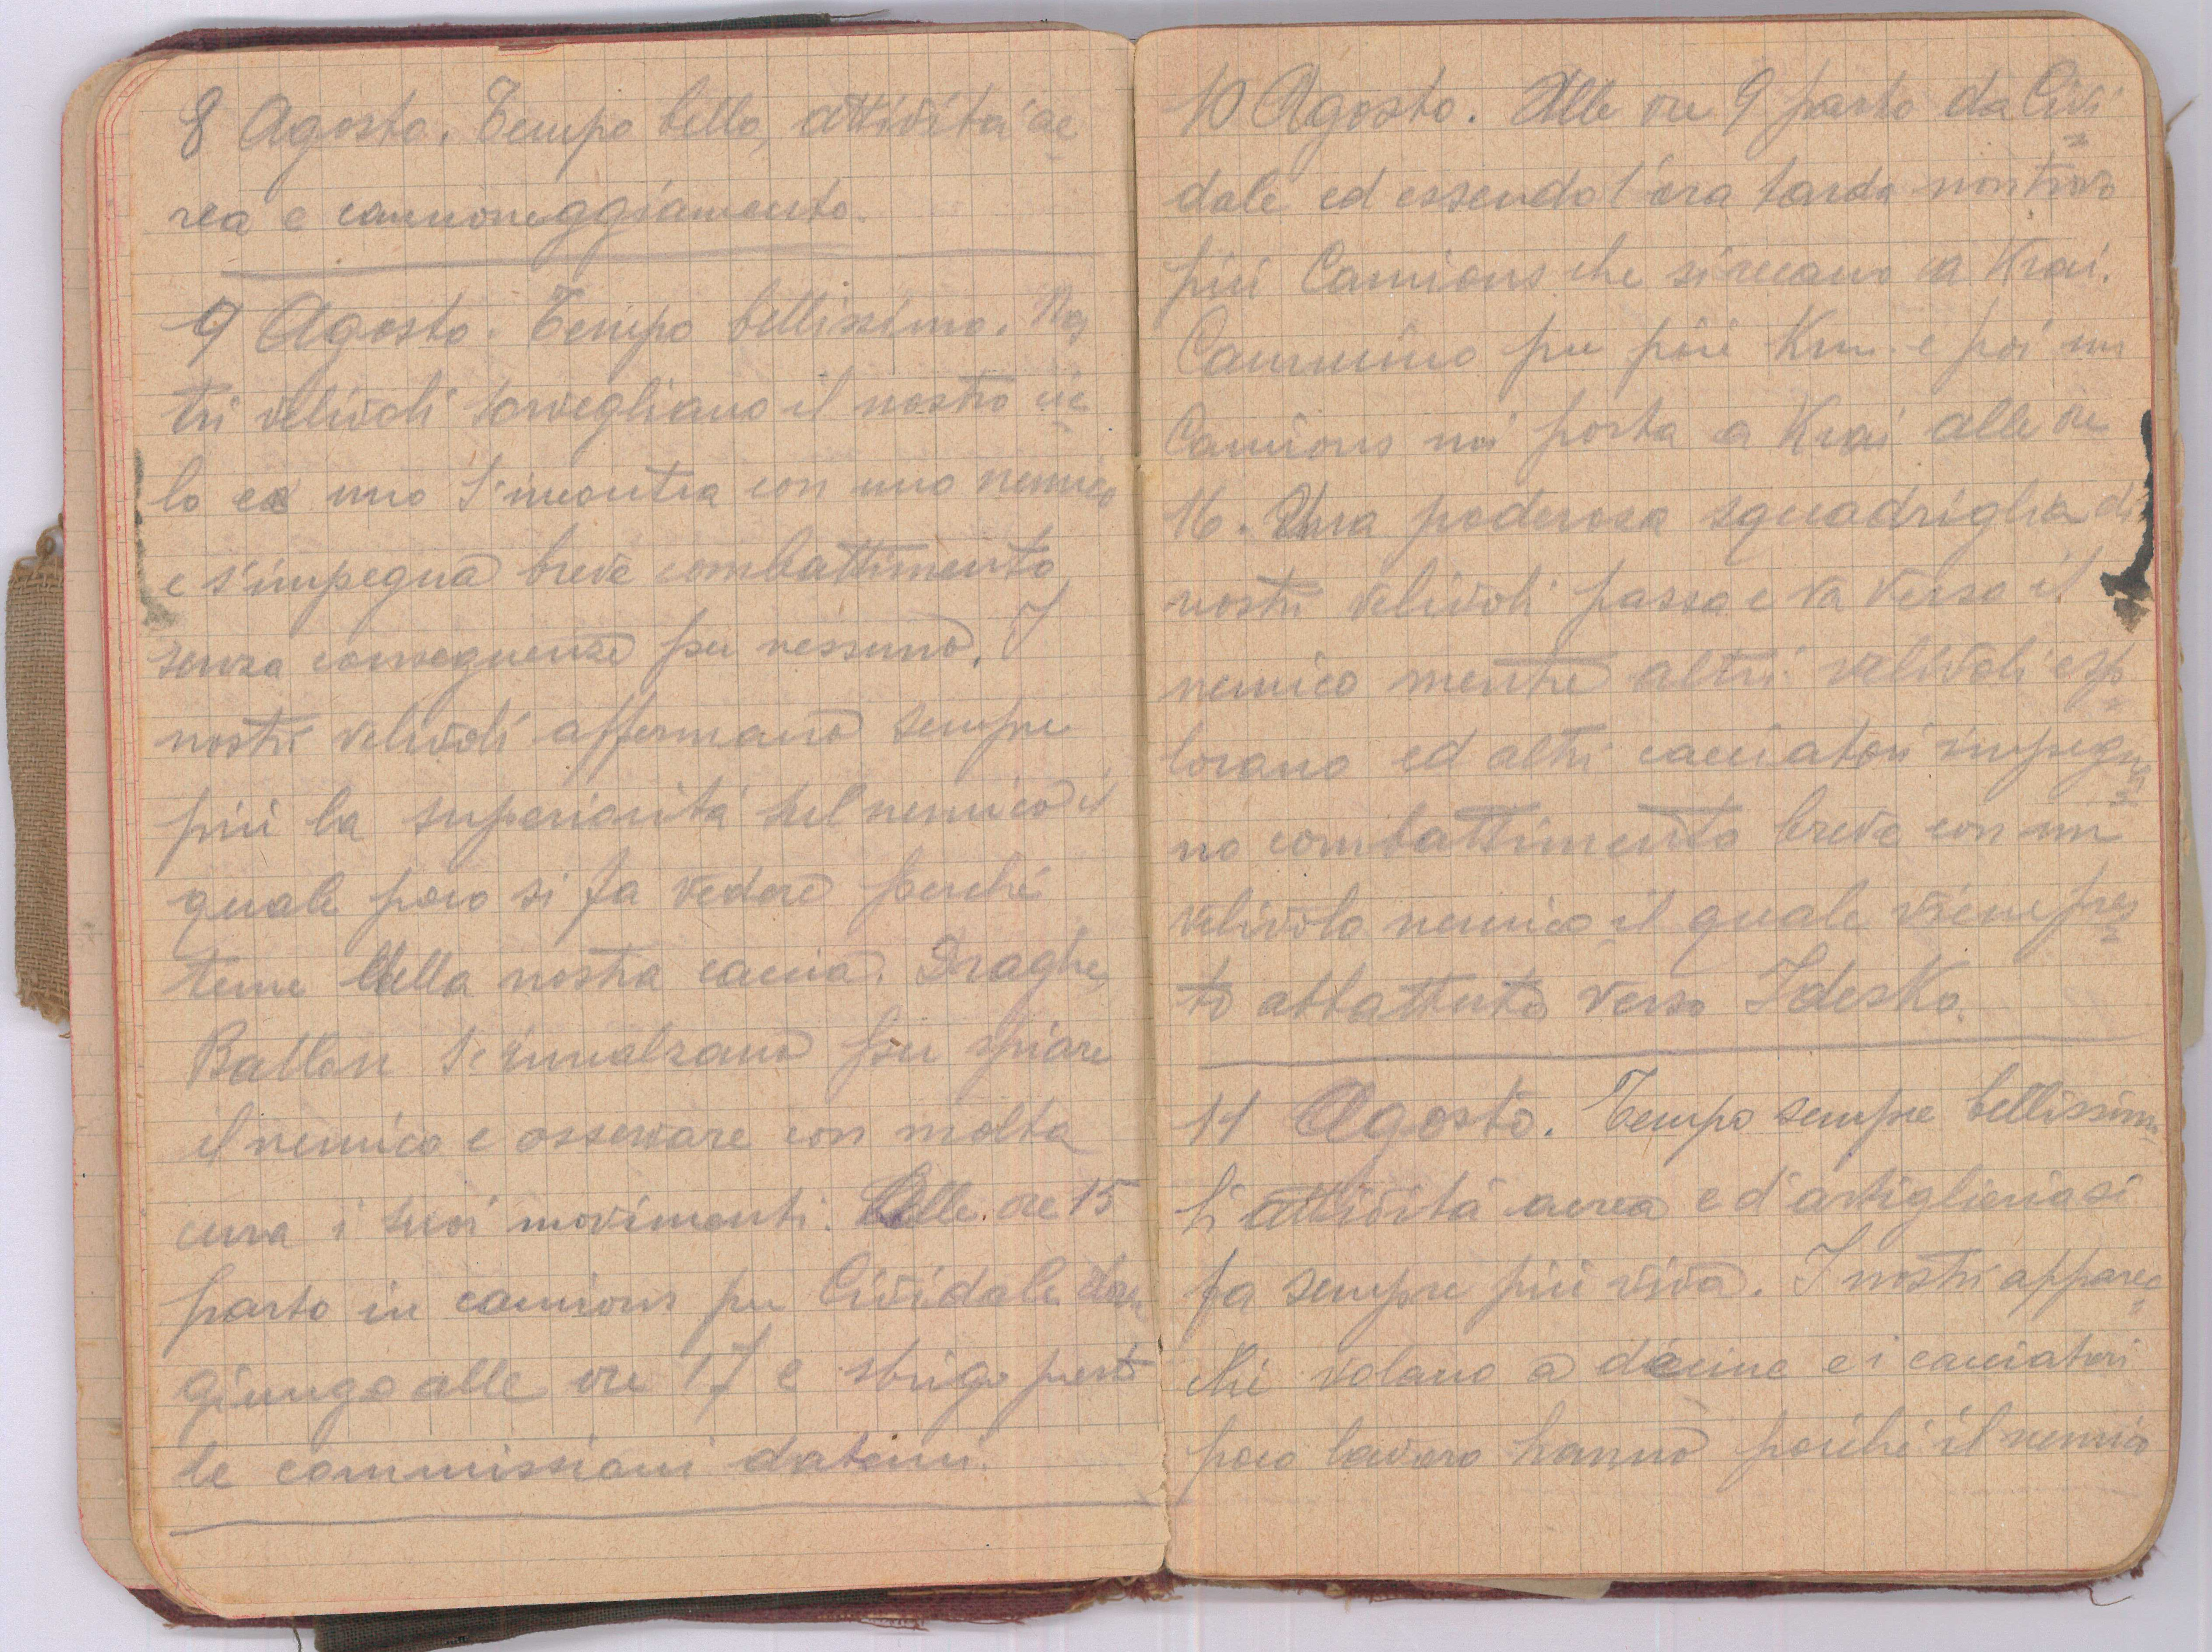 8 Agosto. Tempo bello, attivitá ae
rea e cannoneggiamento.
9 Agosto. Tempo bellissimo. Nos
tri velivoli sorvegliano il nostro cie
lo ed uno s'incontra con uno nemico
e s'impegna breve combattimento
senza conseguenze per nessuno. I
nostri velivoli affermano sempre
piú la superioritá sul nemico il
quale poco si fa vedere perché
teme della nostra caccia. Draghe
Ballon s'innalzano per spiare
il nemico e osservare con molta
cura i suoi movimenti. Alle ore 15
parto in camions per Cividale
giungo alle ore 17 e sbrigo presto
le commissioni datemi.
10 Agosto. Alle ore 9 parto da Civi
dale ed essendo l'ora tarda non trovo
piú Camions che si recano a Krai.
Cammino per piú Km. e poi un
Camions mi porta a Krai alle ore
16. Una poderosa squadriglia di
nostri velivoli passa e va verso il
nemico mentre altri velivoli esp
lorano ed altri cacciatori impegna
no combattimento breve con un
velivolo nemico il quale viene pres
to abbattuto verso Idesko.
11 Agosto. Tempo sempre bellissimo
L'attivitá aerea e d'artiglieria si
fa sempre piú viva. I nostri apparec
chi volano a decine e i cacciatori
poco lavoro hanno poiché il nemico